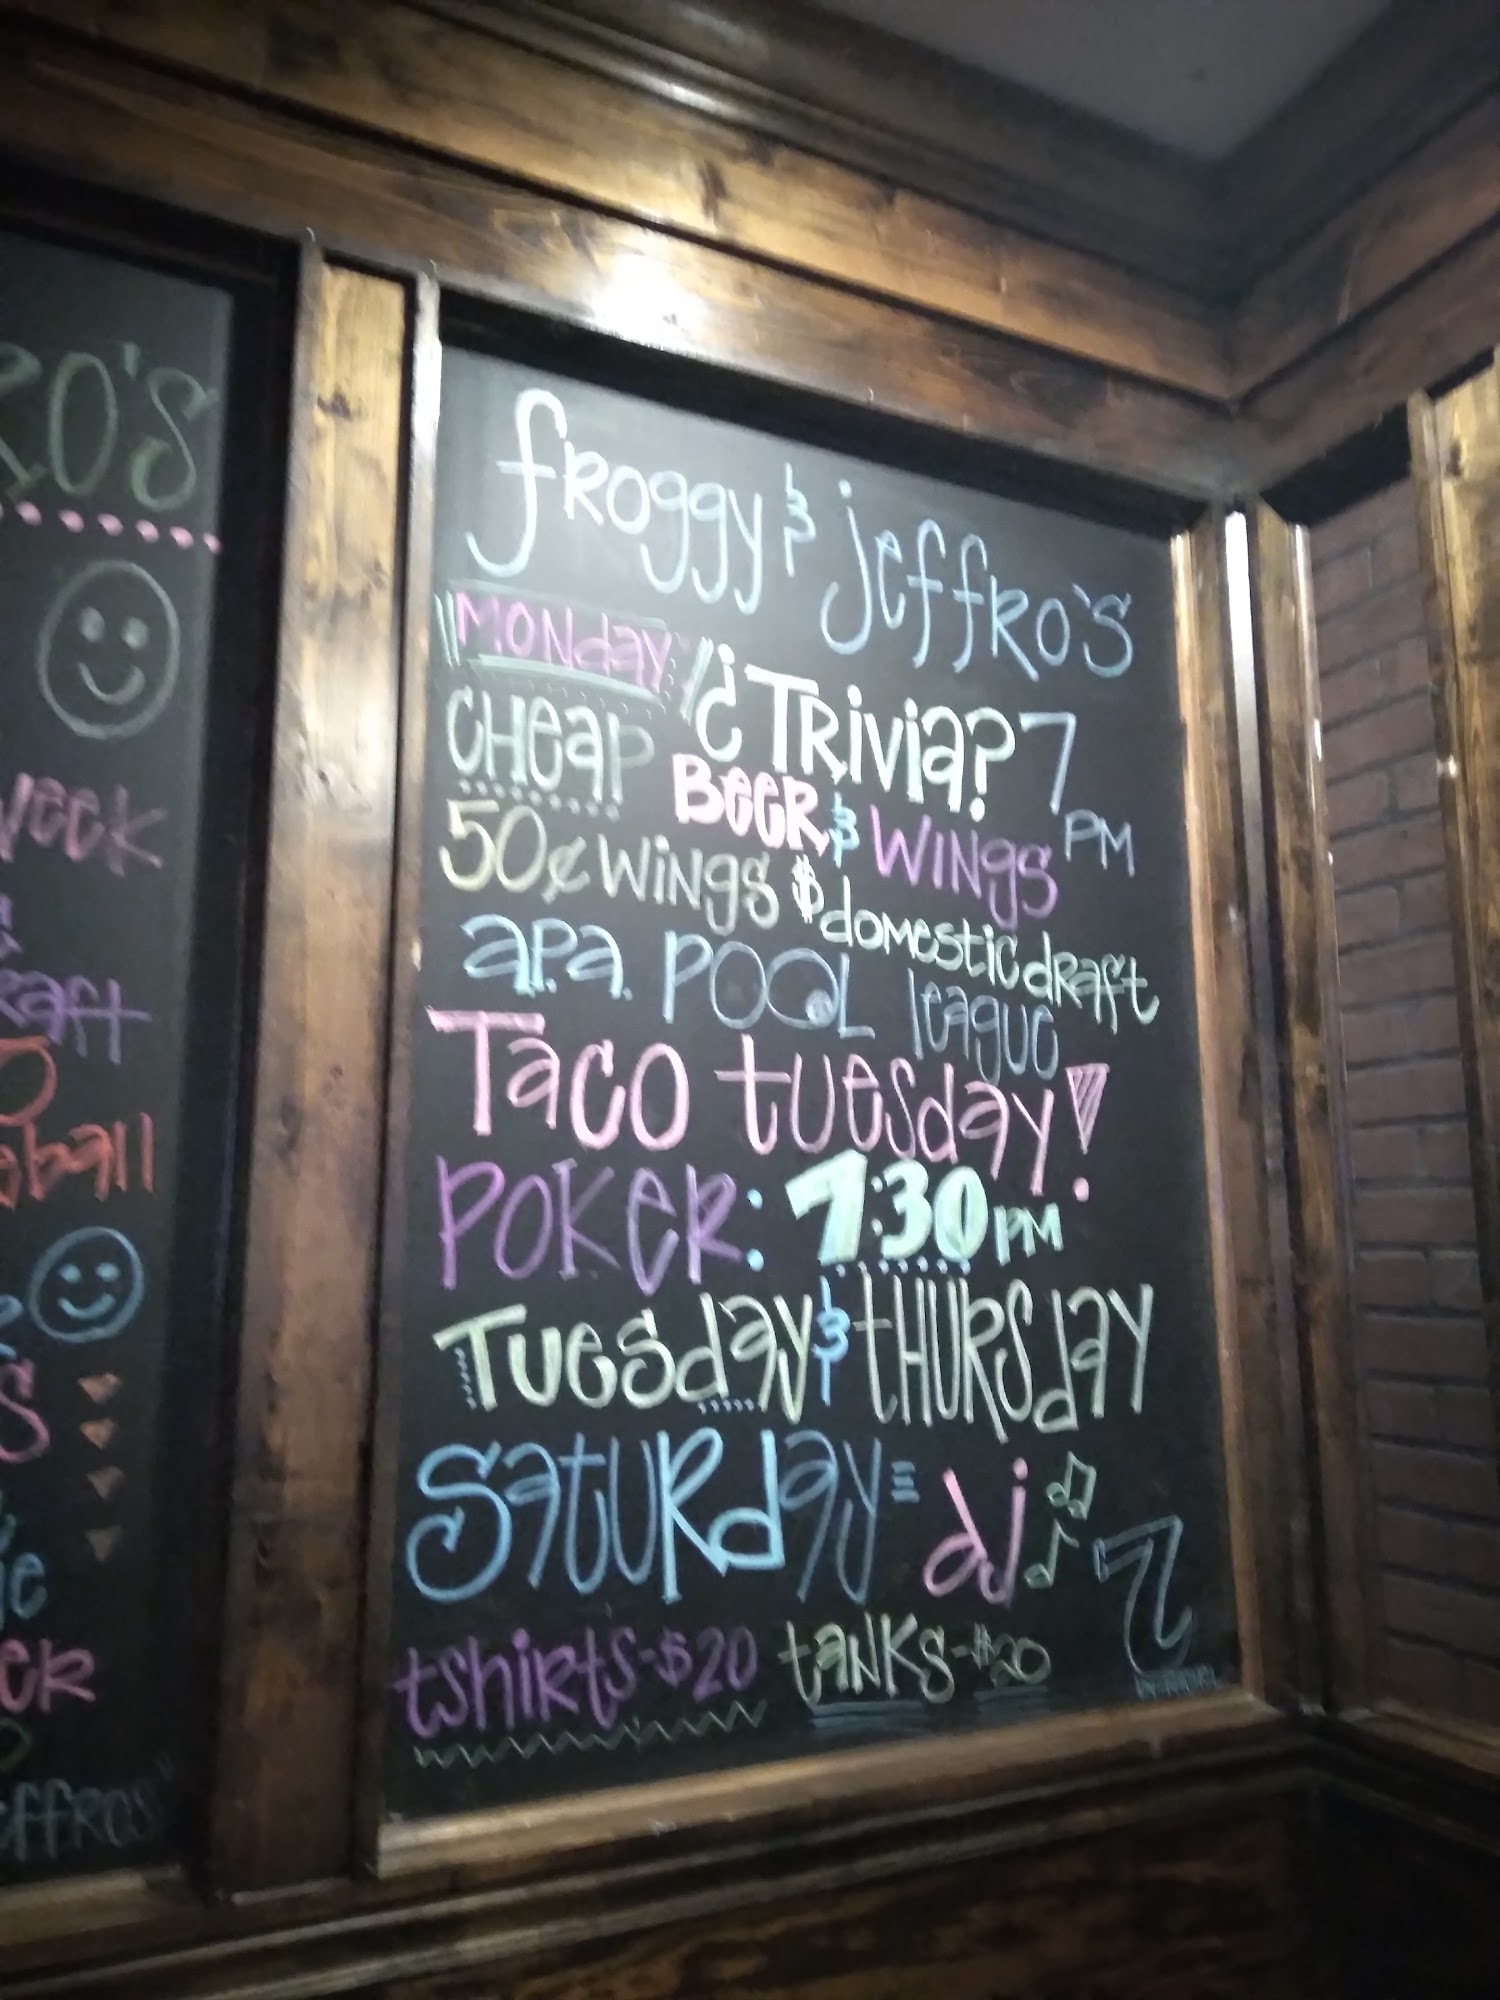 RO'S
froggy & jeffro's
Monday ¿Trivia? 7 PM
cheap Beer & Wings
50¢ wings $ domestic draft
a.p.a. POOL league
Taco tuesday!
POKER: 7:30 PM
Tuesday & thursday
Saturday = dj
tshirts-$20 tanks-$20